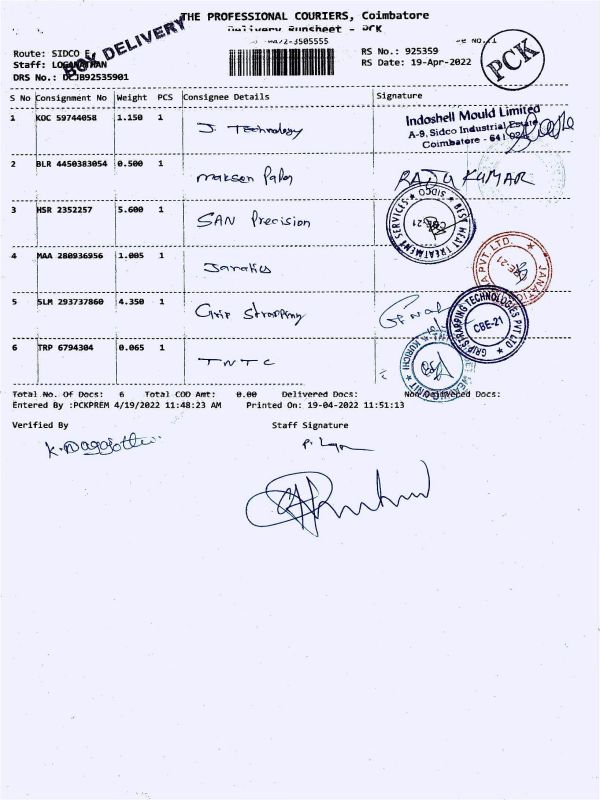 THE PROFESSIONAL COURIERS, Coimbatore
Delivery Runsheet - PCK
BOY DELIVERY
-3505555
PCK
Route: SIDCO E
Staff:
DRS No.: DCJB92535901
RS No.: 925359
RS Date: 19-Apr-2022
S No Consignment No Weight PCS Consignee Details Signature
1 KOC 59744058 1.150 1 J. Technology
Indoshell Mould Limited
A-9, Sidco Industrial Estate
Coimbatore - 641 021
2 BLR 4450383054 0.500 1 RAJU KUMAR
3 HSR 2352257 5.600 1 SAN Precision
BEST HEAT TREATMENT SERVICES SIDCO CBE-21
4 MAA 280936956 1.005 1 Janatics
PVT LTD. CBE-21
5 SLM 293737860 4.350 1 Grip Strapping
GRIP STRAPPING TECHNOLOGIES PVT LTD CBE-21
6 TRP 6794304 0.065 1 TNTC
Total No. Of Docs: 6 Total COD Amt: 0.00 Delivered Docs: Non Delivered Docs:
Entered By :PCKPREM 4/19/2022 11:48:23 AM Printed On: 19-04-2022 11:51:13
Verified By Staff Signature